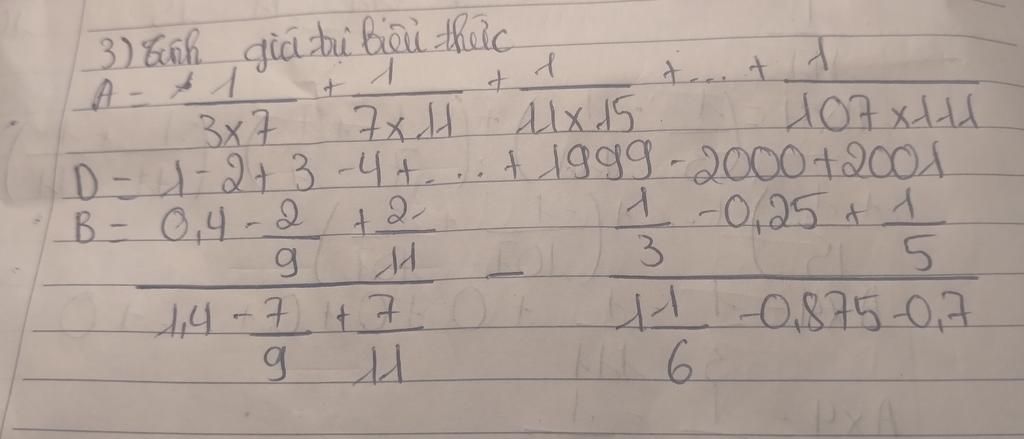 3) Tính giá trị biểu thức
A = 1/(3x7) + 1/(7x11) + 1/(11x15) + ... + 1/(107x111)
D = 1-2+3-4+...+1999-2000+2001
B = (0,4 - 2/9 + 2/11)/(1,4 - 7/9 + 7/11) - (1/3 - 0,25 + 1/5)/(1 1/6 - 0,875 - 0,7)